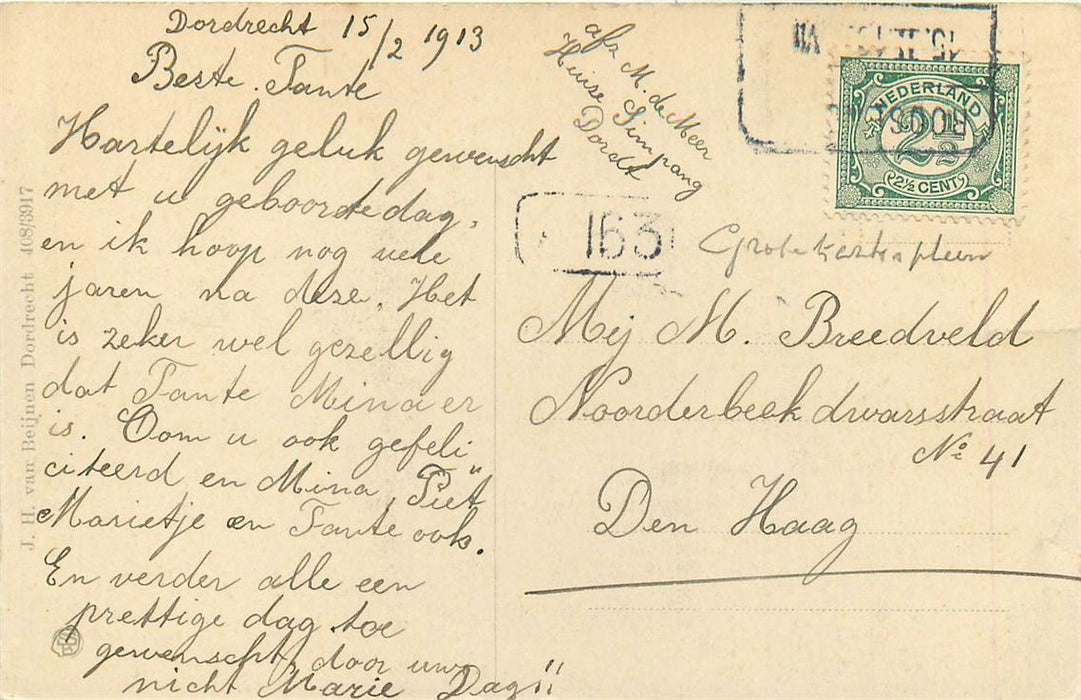 Dordrecht 15/2 1913
Beste Tante
Hartelijk geluk gewenscht
met u geboortedag,
en ik hoop nog vele
jaren na deze. Het
is zeker wel gezellig
dat Tante Mina er
is. Oom u ook gefeli
citeerd en Mina, Piet
Marietje en Tante ook.
En verder alle een
prettige dag toe
gewenscht, door uw
nicht Marie Dag!!
afz M. de Meer
Huize Simpang
Dordt
NEDERLAND
2½
2½ CENT
163
Mej M. Breedveld
Noorderbeek dwarsstraat
No 41
Den Haag
J. H. van Beijnen Dordrecht 408/3917